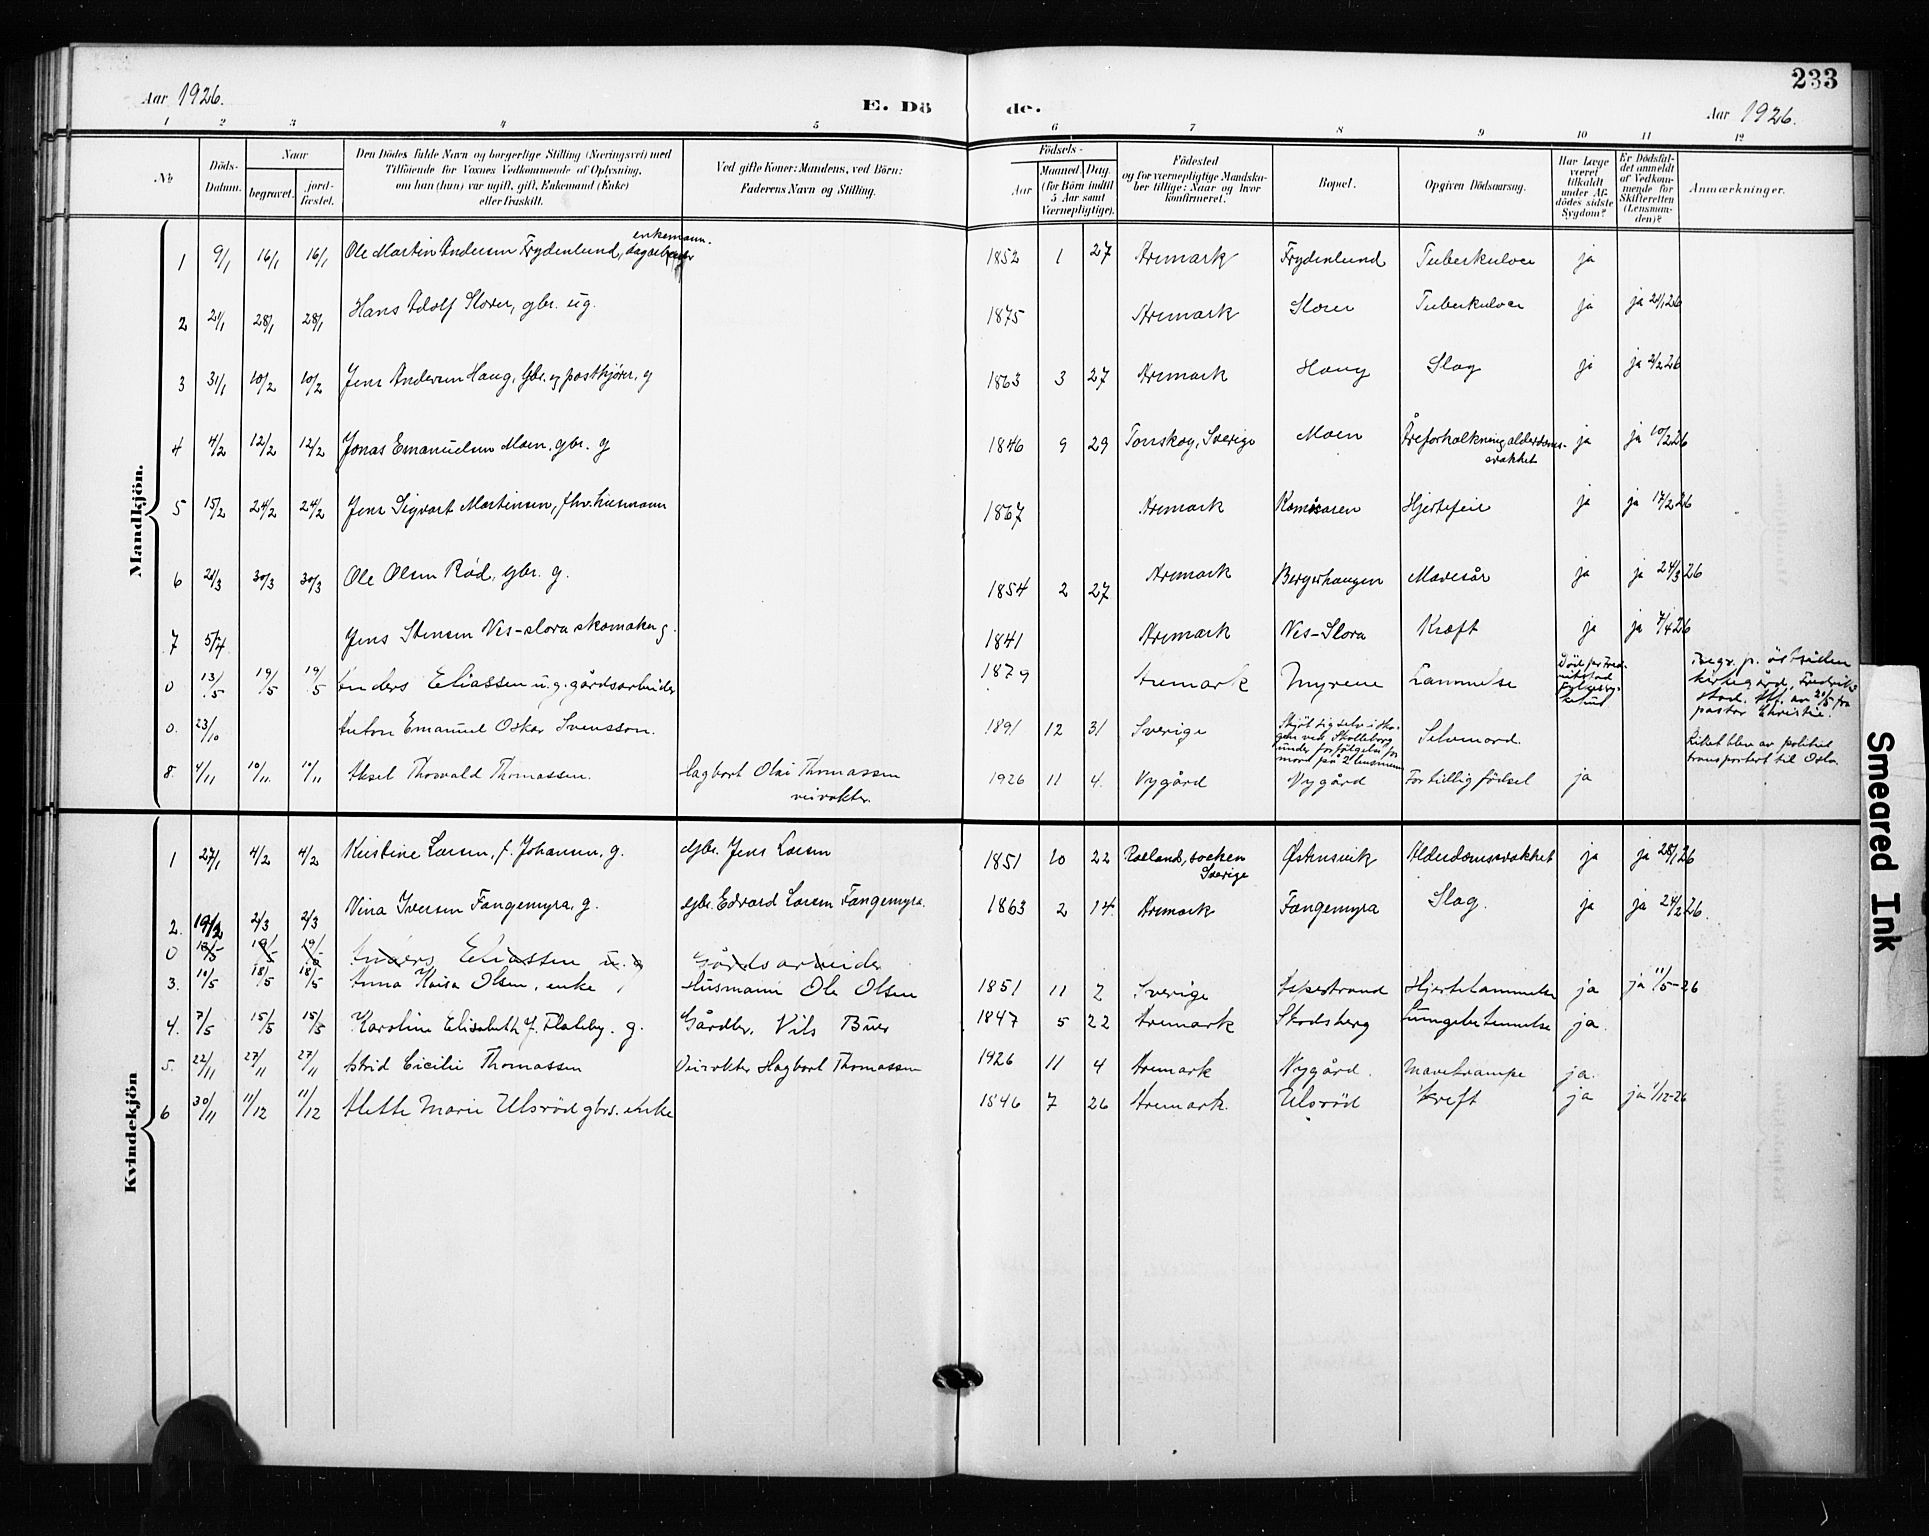 233
Aar 1926.
E. Döde.
Aar 1926.
1 2 3 4 5 6 7 8 9 10 11 12
No.
Döds-Datum.
Naar
begravet.
jord-fæstet.
Den Dödes fulde Navn og borgerlige Stilling (Næringsvei) med
Tilföiende for Voxnes Vedkommende af Oplysning,
om han (hun) var ugift, gift, Enkemand (Enke)
eller fraskilt.
Ved gifte Koner: Mandens, ved Börn:
Faderens Navn og Stilling.
Födsels-
Aar
Maaned. Dag.
(for Börn indtil
5 Aar samt
Værnepligtige).
Födested
og for værnepligtige Mandska-
ber tillige: Naar og hvor
konfirmeret.
Bopæl.
Opgiven Dödsaarsag.
Har Læge
været
tilkaldt
under Af-
dödes sidste
Sygdom?
Er Dödsfal-
det anmeldt
af Vedkom-
mende for
Skifteretten
(Lensman-
den)?
Anmærkninger.
Mandkjön.
1 9/1 16/1 16/1 Ole Martin Andersen Frydenlund, enkemann. dagarbeider 1852 1 27 Aremark Frydenlund Tuberkulose ja
2 21/1 28/1 28/1 Hans Adolf Slorer, gbr. ug. 1875 Aremark Slorer Tuberkulose ja ja 21/1 26
3 31/1 10/2 10/2 Jens Andersen Haug, Gbr. og postkjörer, g 1863 3 27 Aremark Haug Slag ja ja 2/2 26
4 4/2 12/2 12/2 Jonas Emanuelsen Moen, gbr. g 1846 9 29 Torrskog, Sverige Moen Åreforkalkning, alderdoms-
svakhet ja ja 10/2 26
5 15/2 24/2 24/2 Jens Sigvart Martinsen, fhv. husmann 1867 Aremark Hjertefeil ja ja 17/2 26
6 21/3 30/3 30/3 Ole Olsen Röd, gbr. g. 1854 2 27 Aremark Bergerhaugen Mavesår ja ja 24/3 26
7 5/4 Jens Stensen Nes-slora skomaker g. 1841 Aremark Nes-Slora Kræft ja ja 7/4 26
0 13/5 19/5 19/5 Anders Eliassen u.g. gårdsarbeider 1879 Aremark Myrene Lammelse
Begr. p. östsiden
kirkegård, Fredrik-
stad. Att. av 20/5 fra
pastor Christie.
0. 23/10 Anton Emanuel Oskar Svensson. 1891 12 31 Sverige Skjöt sig selv i sko-
gen ved Skolleborg
under forfölgelse for
mord på 2 lensmenn Selvmord. Liket blev av politiet
transportert til Oslo.
8. 4/11 10/11 10/11 Aksel Thorvald Thomassen. Hagbart Olai Thomassen
veivokter. 1926 11 4. Nygård Nygård For tidlig födsel ja
Kvindekjön
1 27/1 4/2 4/2 Kristine Larsen, f. Johansen, g. Gbr. Jens Larsen 1851 10 22 socken
Sverige Östensvik Alderdomssvakhet ja ja 28/1 26
2. 19/2 2/3 2/3 Nina Iversen Fangemyra, g. Gbr. Edvard Larsen Fangemyra. 1863 2 14 Aremark Fangemyra Slag. ja ja 24/2 26.
0 13/5 19/5 19/5 Anders Eliassen u. g Gårdsarbeider
3. 10/5 18/5 18/5 Anna Kaisa Olsen, enke Husmann Ole Olsen 1851 11 2 Sverige Aspestrand Hjertelammelse ja ja 11/5-26
4. 7/5 15/5 15/5 Karoline Elisabeth f. Flateby. g. Gårdbr. Nils Buer 1847 5 22 Aremark Skodsberg Lungebetennelse ja.
5. 22/11 27/11 27/11 Astrid Cicilie Thomassen Veivokter Hagbart Thomassen 1926 11 4 Aremark Nygård. Mavekrampe ja.
6 30/11 11/12 11/12 Alette Marie Ulsröd gbrs. enke 1846 7 26 Aremark. Ulsröd Kreft ja ja 1/12-26
Smeared Ink